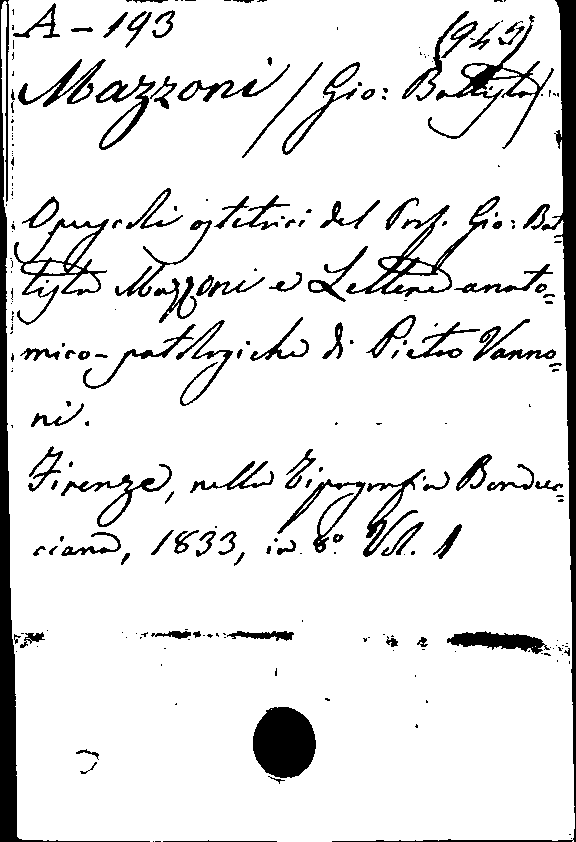 A - 193 (949)
Mazzoni (Gio: Battista)
Opuscoli ostetrici del Prof. Gio: Bat=
tista Mazzoni e Lettere anato=
mico-patologiche di Pietro Vanno=
ni.
Firenze, nella Tipografia Bonduc=
ciana, 1833, in 8º Vol. 1